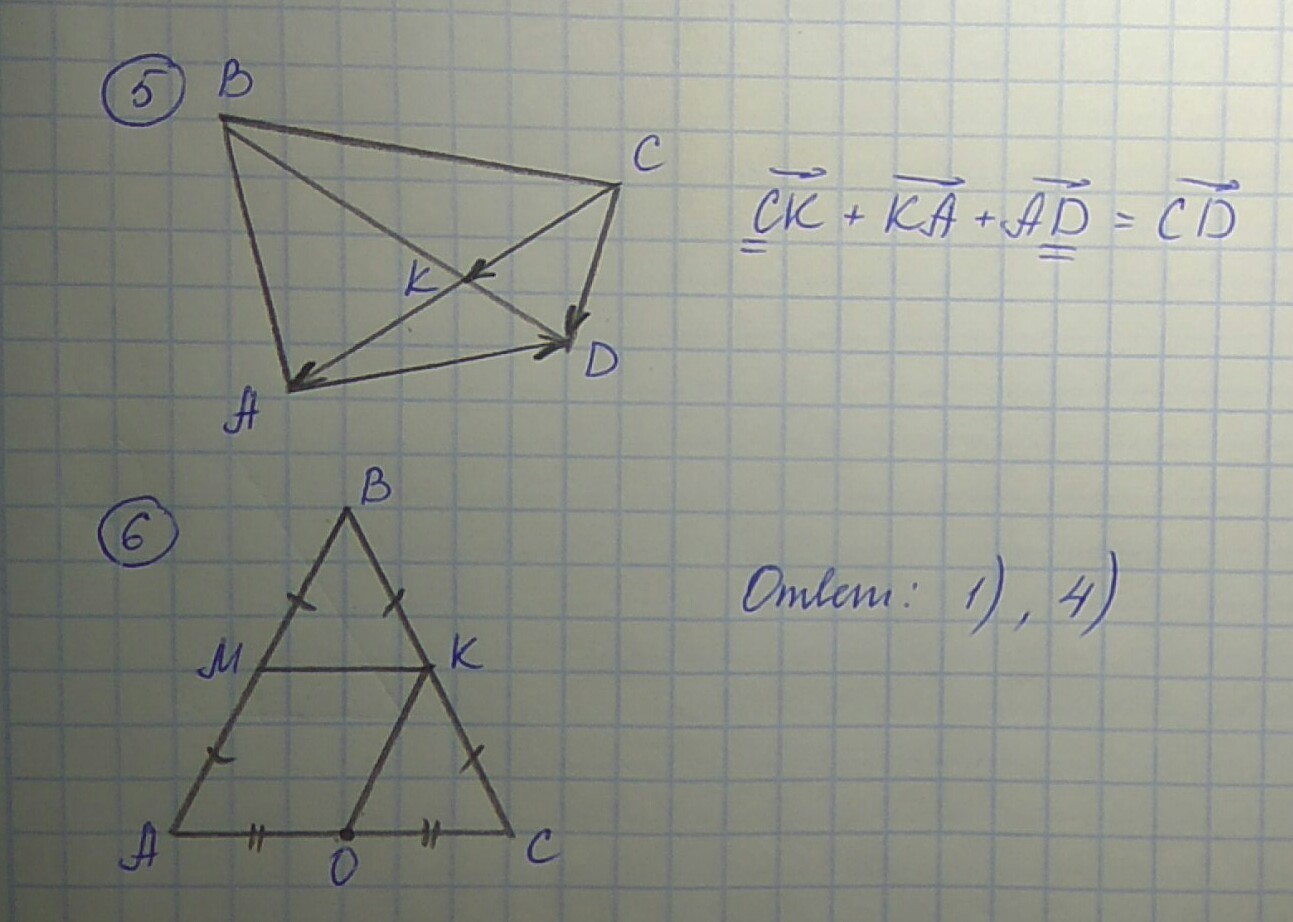 5
B
C
K
A
D
CK + KA + AD = CD
6
B
M
K
A
O
C
Ответ: 1), 4)